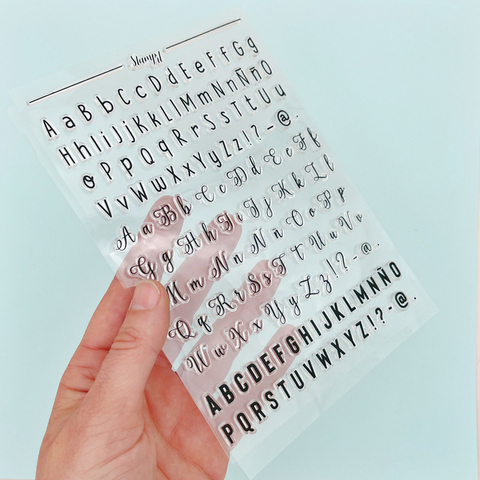 Stampit
AaBbCcDdEeFfGg
HhIiJjKkLlMmNnÑñO
oPpQqRrSsTtUu
VvWwXxYyZz!?-@.
AaBbCcDdEeFf
GgHhIiJjKkLl
MmNnÑñOoPp
QqRrSsTtUuVv
WwXxYyZz!?-@.
ABCDEFGHIJKLMNÑO
PQRSTUVWXYZ!?-@.